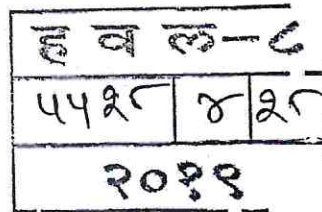 ह व ल - ८
५५२८ ४ २८
२०१९